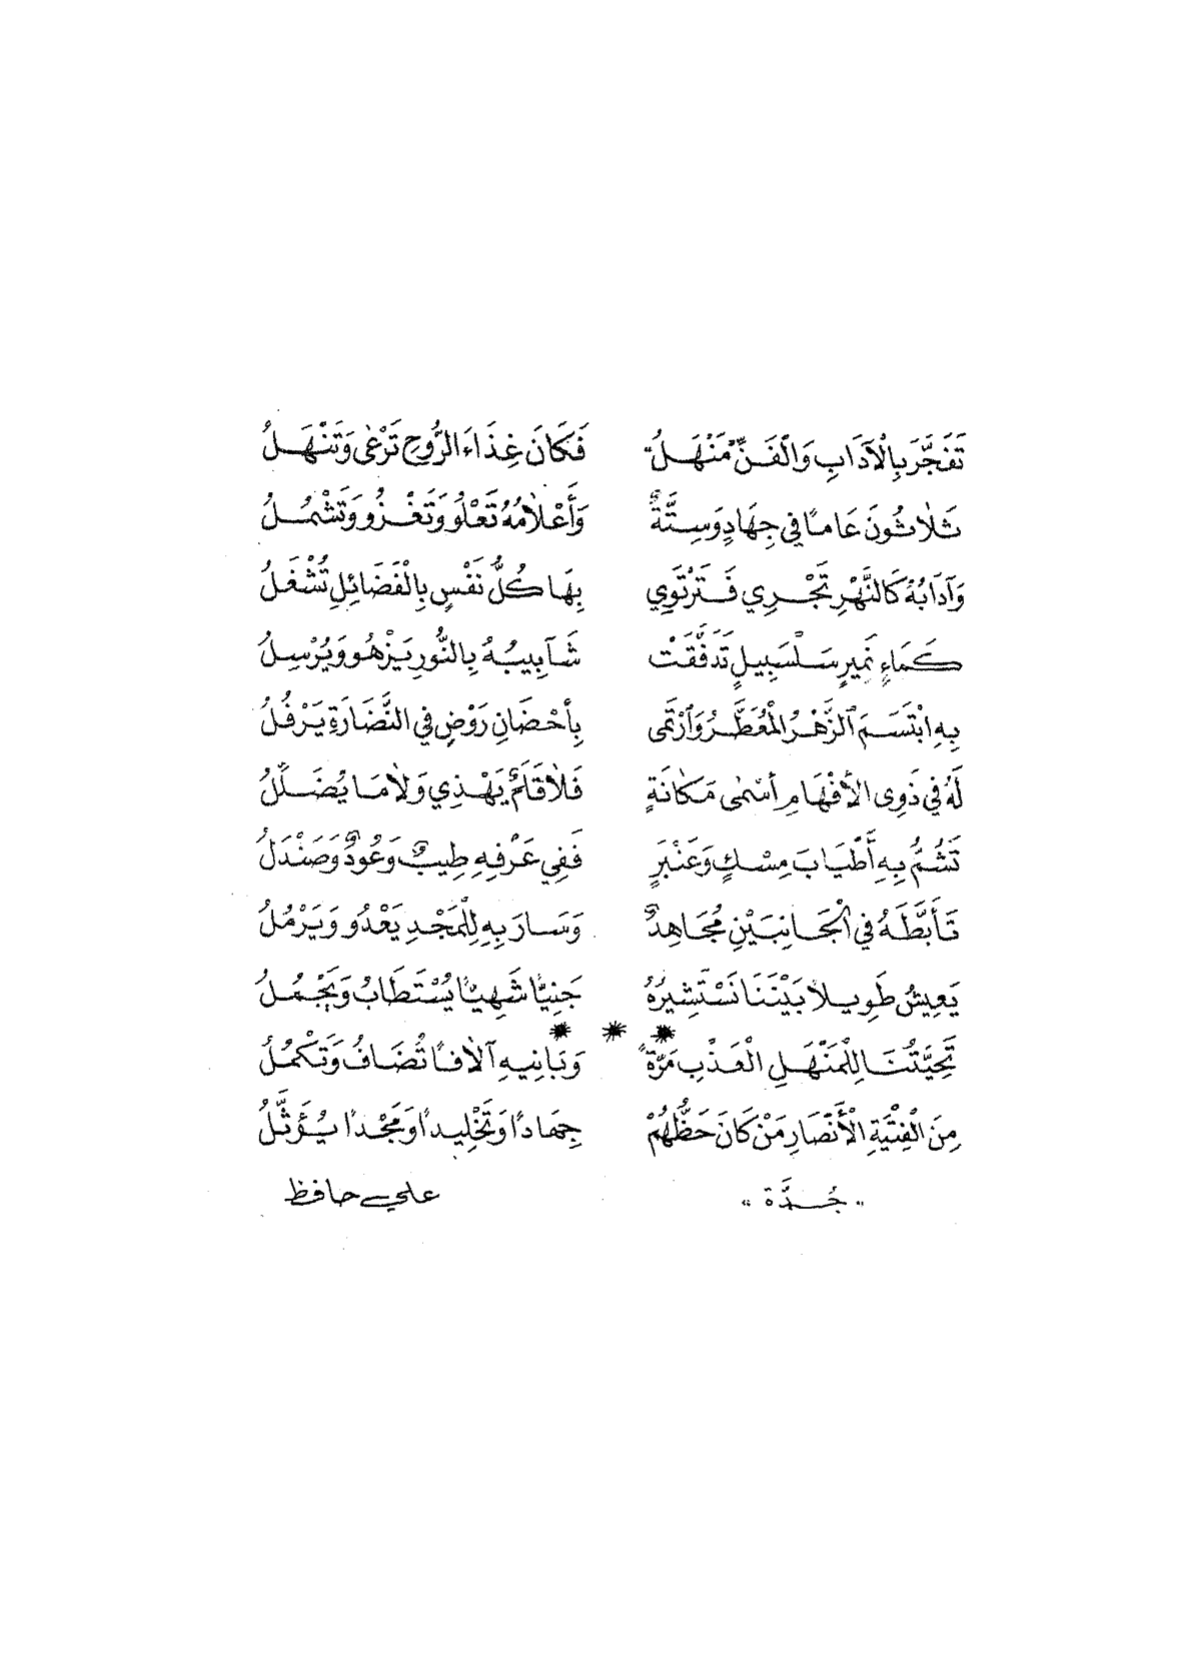 تَفَجَّرَ بِالْآدَابِ وَالْفَنِّ مَنْهَلُ فَكَانَ غِذَاءَ الرُّوحِ تَرْعَى وَتَنْهَلُ
ثَلَاثُونَ عَامًا فِي جِهَادٍ وَسِتَّةٌ وَأَعْلَامُهُ تَعْلُو وَتَغْزُو وَتَشْمُلُ
وَآدَابُهُ كَالنَّهْرِ تَجْرِي فَتَرْتَوِي بِهَا كُلُّ نَفْسٍ بِالْفَضَائِلِ تُشْغَلُ
كَمَاءٍ نَمِيرٍ سَلْسَبِيلٍ تَدَفَّقَتْ شَآبِيبُهُ بِالنُّورِ يَزْهُو وَيُرْسِلُ
بِهِ ابْتَسَمَ ٱلزَّهْرُ الْمُعَطَّرُ وَٱرْتَمَى بِأَحْضَانِ رَوْضٍ فِي النَّضَارَةِ يَرْفُلُ
لَهُ فِي ذَوِى الْأَفْهَامِ أَسْمَى مَكَانَةٍ فَلَا قَلَمٌ يَهْذِي وَلَا مَا يُضَلِّلُ
تَشُمُّ بِهِ أَطْيَابَ مِسْكٍ وَعَنْبَرٍ فَفِي عَرْفِهِ طِيبٌ وَعُودٌ وَصَنْدَلُ
تَأَبَّطَهُ فِي الْجَانِبَيْنِ مُجَاهِدٌ وَسَارَ بِهِ لِلْمَجْدِ يَعْدُو وَيَرْمُلُ
يَعِيشُ طَوِيلًا بَيْنَنَا نَسْتَشِيرُهُ جَنِيًّا شَهِيًّا يُسْتَطَابُ وَيَجْمُلُ
* * *
تَحِيَّتُنَا لِلْمَنْهَلِ الْعَذْبِ مَرَّةً وَبَانِيهِ آلَافًا تُضَافُ وَتَكْمُلُ
مِنَ الْفِتْيَةِ الْأَنْصَارِ مَنْ كَانَ حَظُّهُمْ جِهَادًا وَتَخْلِيدًا وَمَجْدًا يُؤَثَّلُ
« جُدَّة » علي حافظ